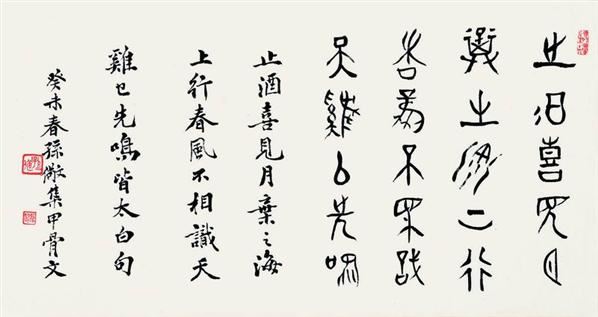 止酒喜見月
棄之海上行
春風不相識
天雞已先鳴
止酒喜見月棄之海
上行春風不相識天
雞已先鳴皆太白句
癸未春孫集甲骨文